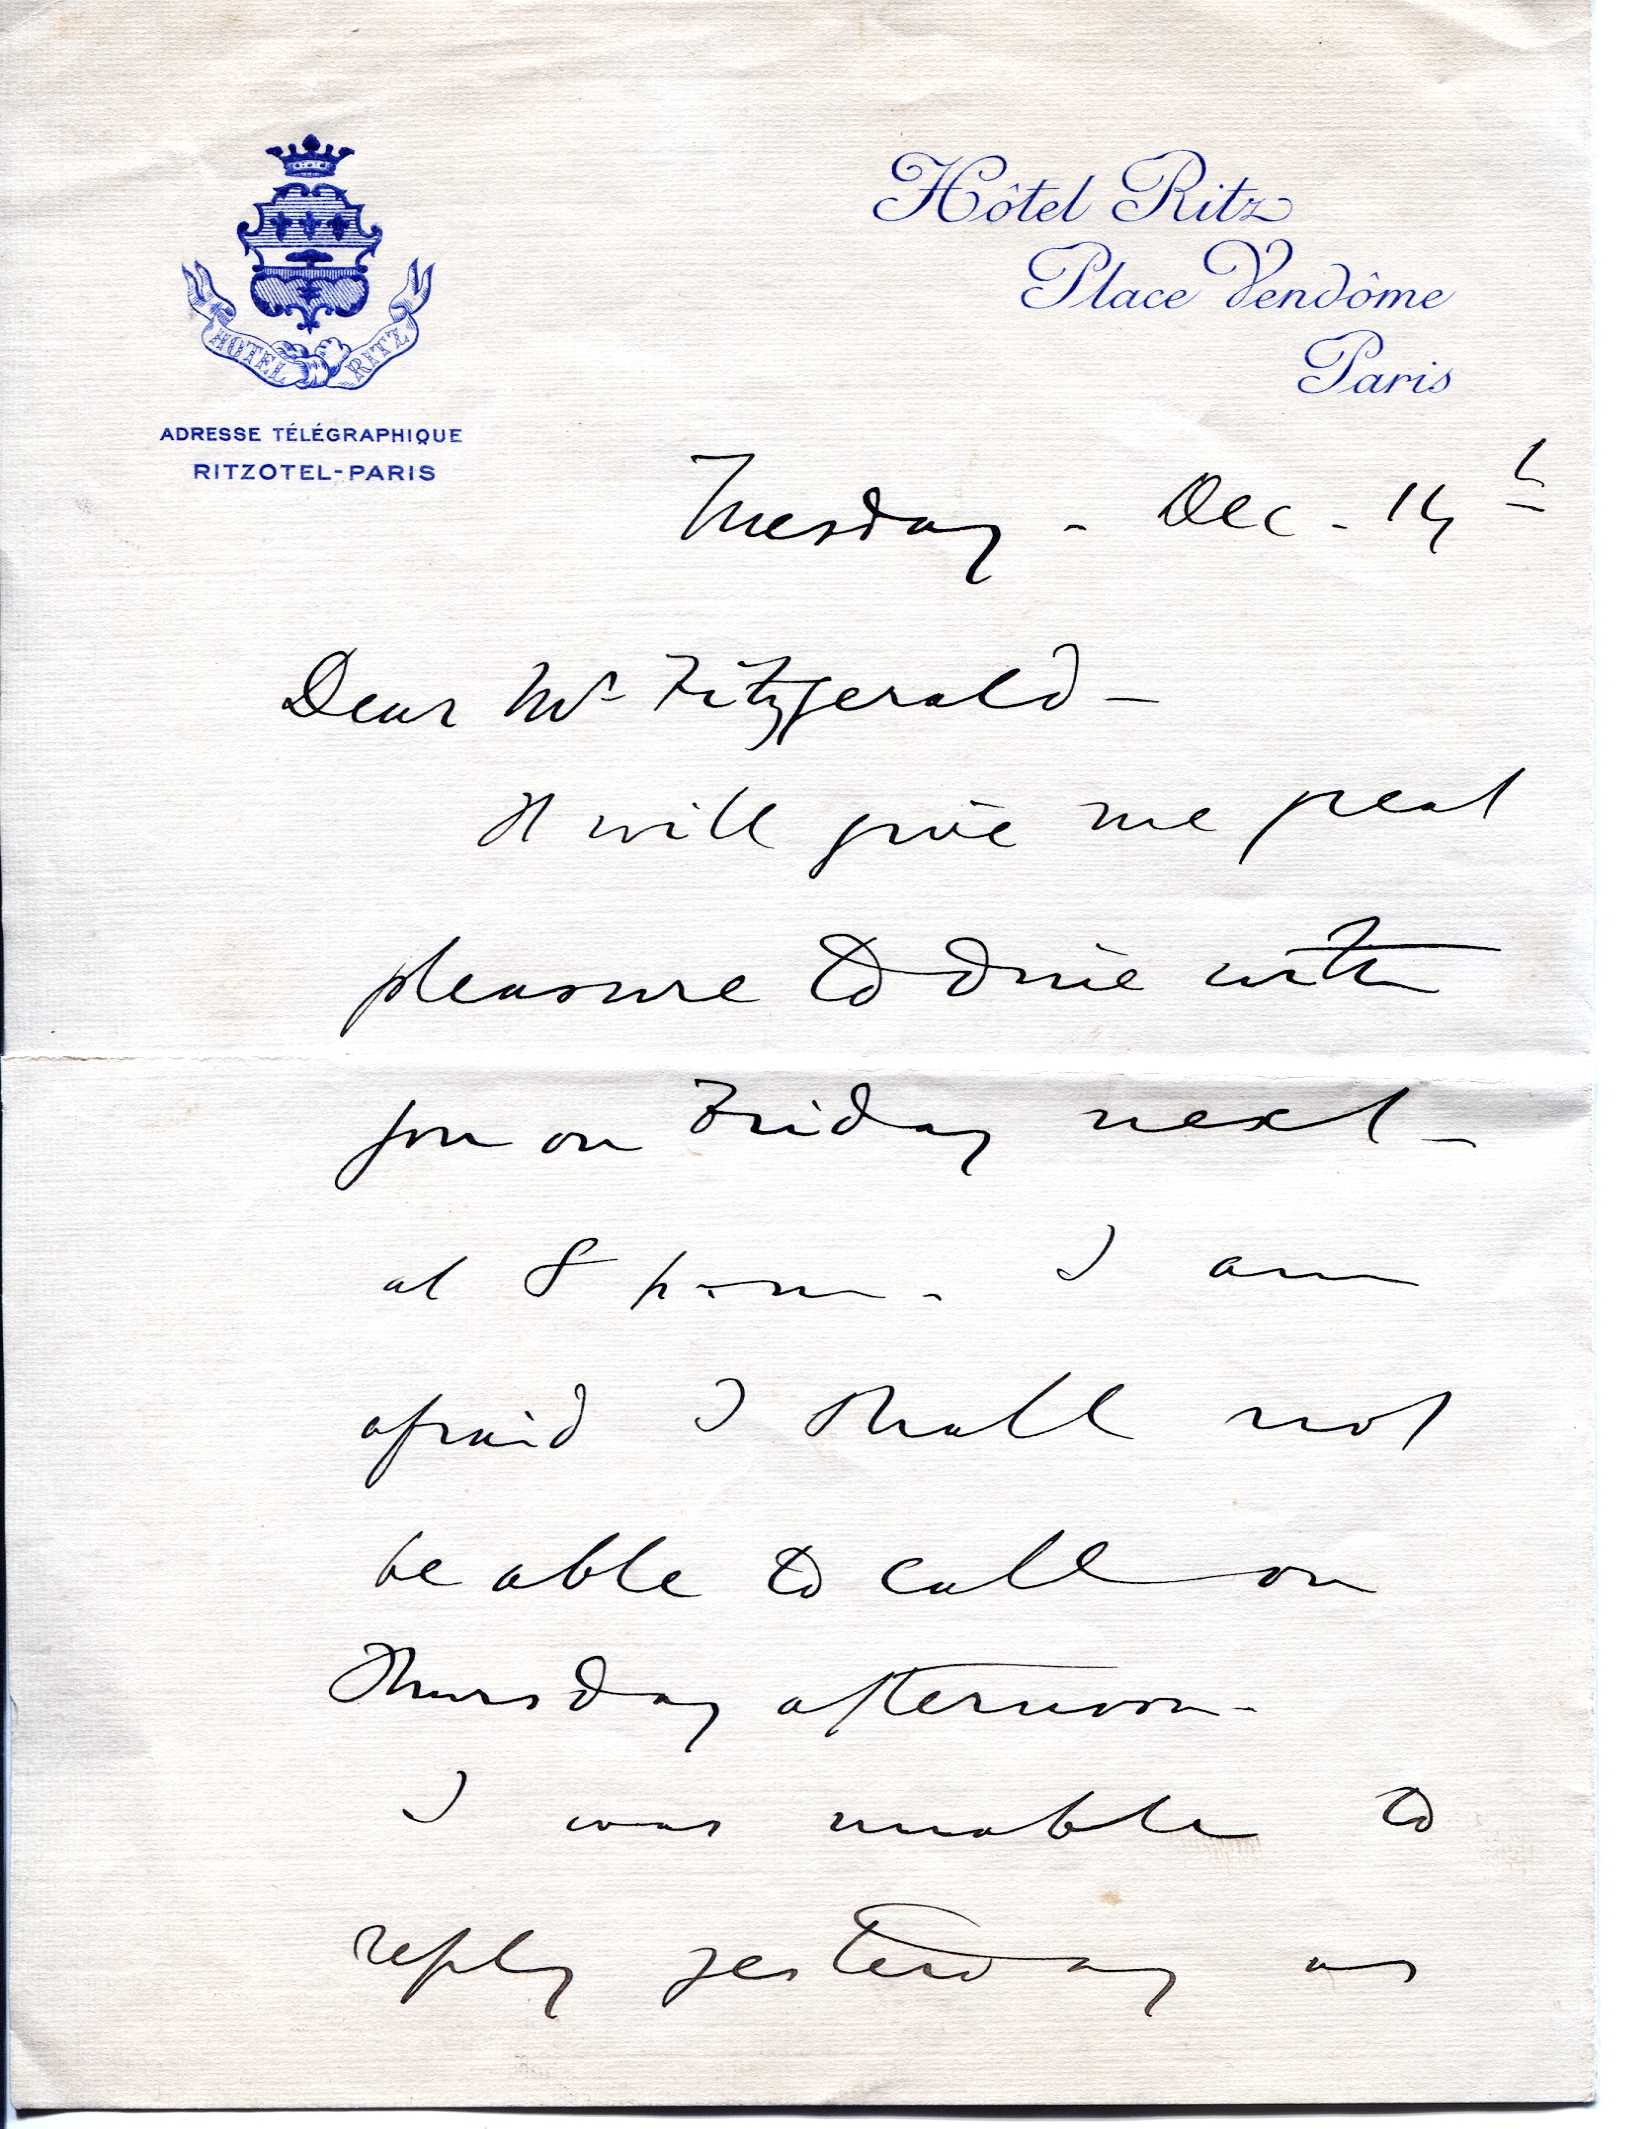 HOTEL RITZ
ADRESSE TÉLÉGRAPHIQUE
RITZOTEL-PARIS
Hôtel Ritz
Place Vendôme
Paris
Tuesday - Dec - 14th
Dear Mr Fitzgerald -
It will give me great
pleasure to dine with
you on Friday next -
at 8 p.m. - I am
afraid I shall not
be able to call on
Thursday afternoon -
I was unable to
reply yesterday as